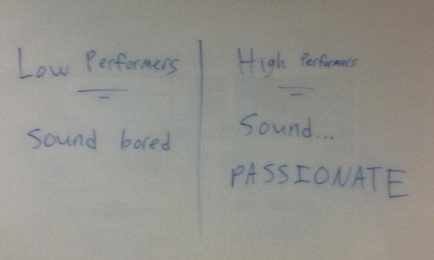 Low Performers
Sound bored
High Performers
Sound...
PASSIONATE